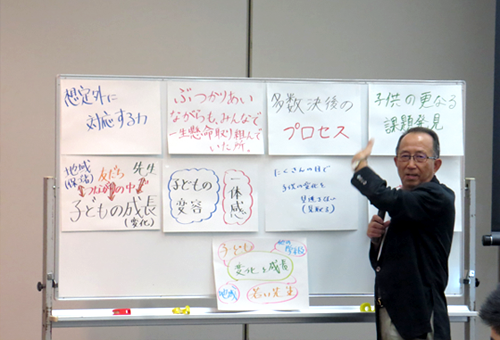 想定外に
対応する力
ぶつかりあい
ながらも、みんなで
一生懸命取り組んで
いた所。
多数決後の
プロセス
子供の更なる
課題発見
地域
友だち
先生
つながりの中で
子どもの成長
(変化)
子どもの
変容
一体感
たくさんの目で
子供の変化を
(見取る)
子ども
変化と成長
地域
若い先生